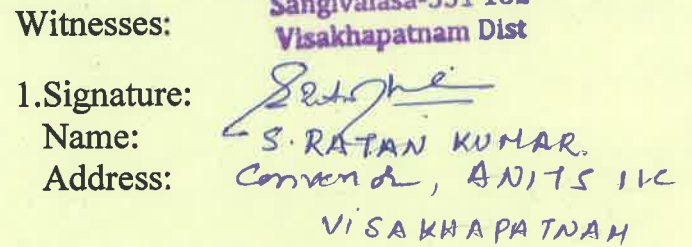 Sangivalasa-531 162
Visakhapatnam Dist
Witnesses:
1.Signature:
Name: S. RATAN KUMAR.
Address: Convenor, ANITS IIC
VISAKHAPATNAM